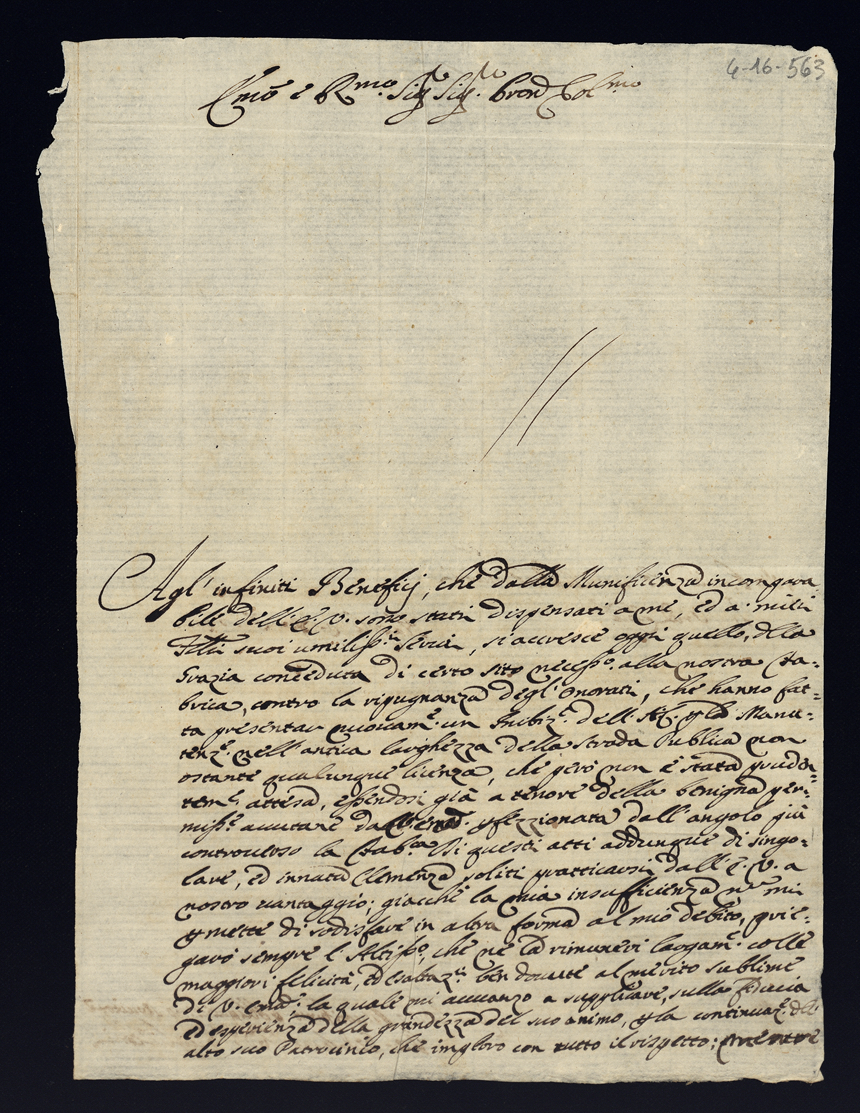 4-16-563
Emõ e Rmo. Sig.r Sig.r Pron Col.mo
Agl'infiniti Beneficj, che dalla Munificenza incompara
bile dell'E. V. sono stati dispensati a me, ed a' miei
Ftlli suoi umiliss.i Servi, si accresce oggi quello, della
Grazia conceduta di certo sito necess.o alla nostra Fa=
brica, contro la ripugnanza degl'Onorati, che hanno fat=
ta presentar nuovam.e un Inibiz.e dell' p la Manu=
tenz.e nell'antica larghezza della strada Publica non
ostante qualunque licenza, che però non è stata pruden=
tem.e attesa, essendosi già a tenore della benigna per=
miss.e avvitare da perfezzionata dall'angolo più
controverso la Fab.ca Di questi atti addunque di singo=
lare, ed innata Clemenza soliti pratticarsi dall'E. V. a
nostro vantaggio; giacchè la mia insufficienza nõ mi
pmette di sodisfare in altra forma al mio debito, prie=
garò sempre l'Altiss.o, che ne la rimuneri largam.e colle
maggiori felicità, ed esaltaz.ni ben dovute al merito sublime
di V. Em.a, la quale mi avvanzo a suppliare, sulla fiducia
ed esperienza della grandezza del suo animo, p la continuaz.e del
alto suo Patrocinio, che imploro con tutto il rispetto; mentre